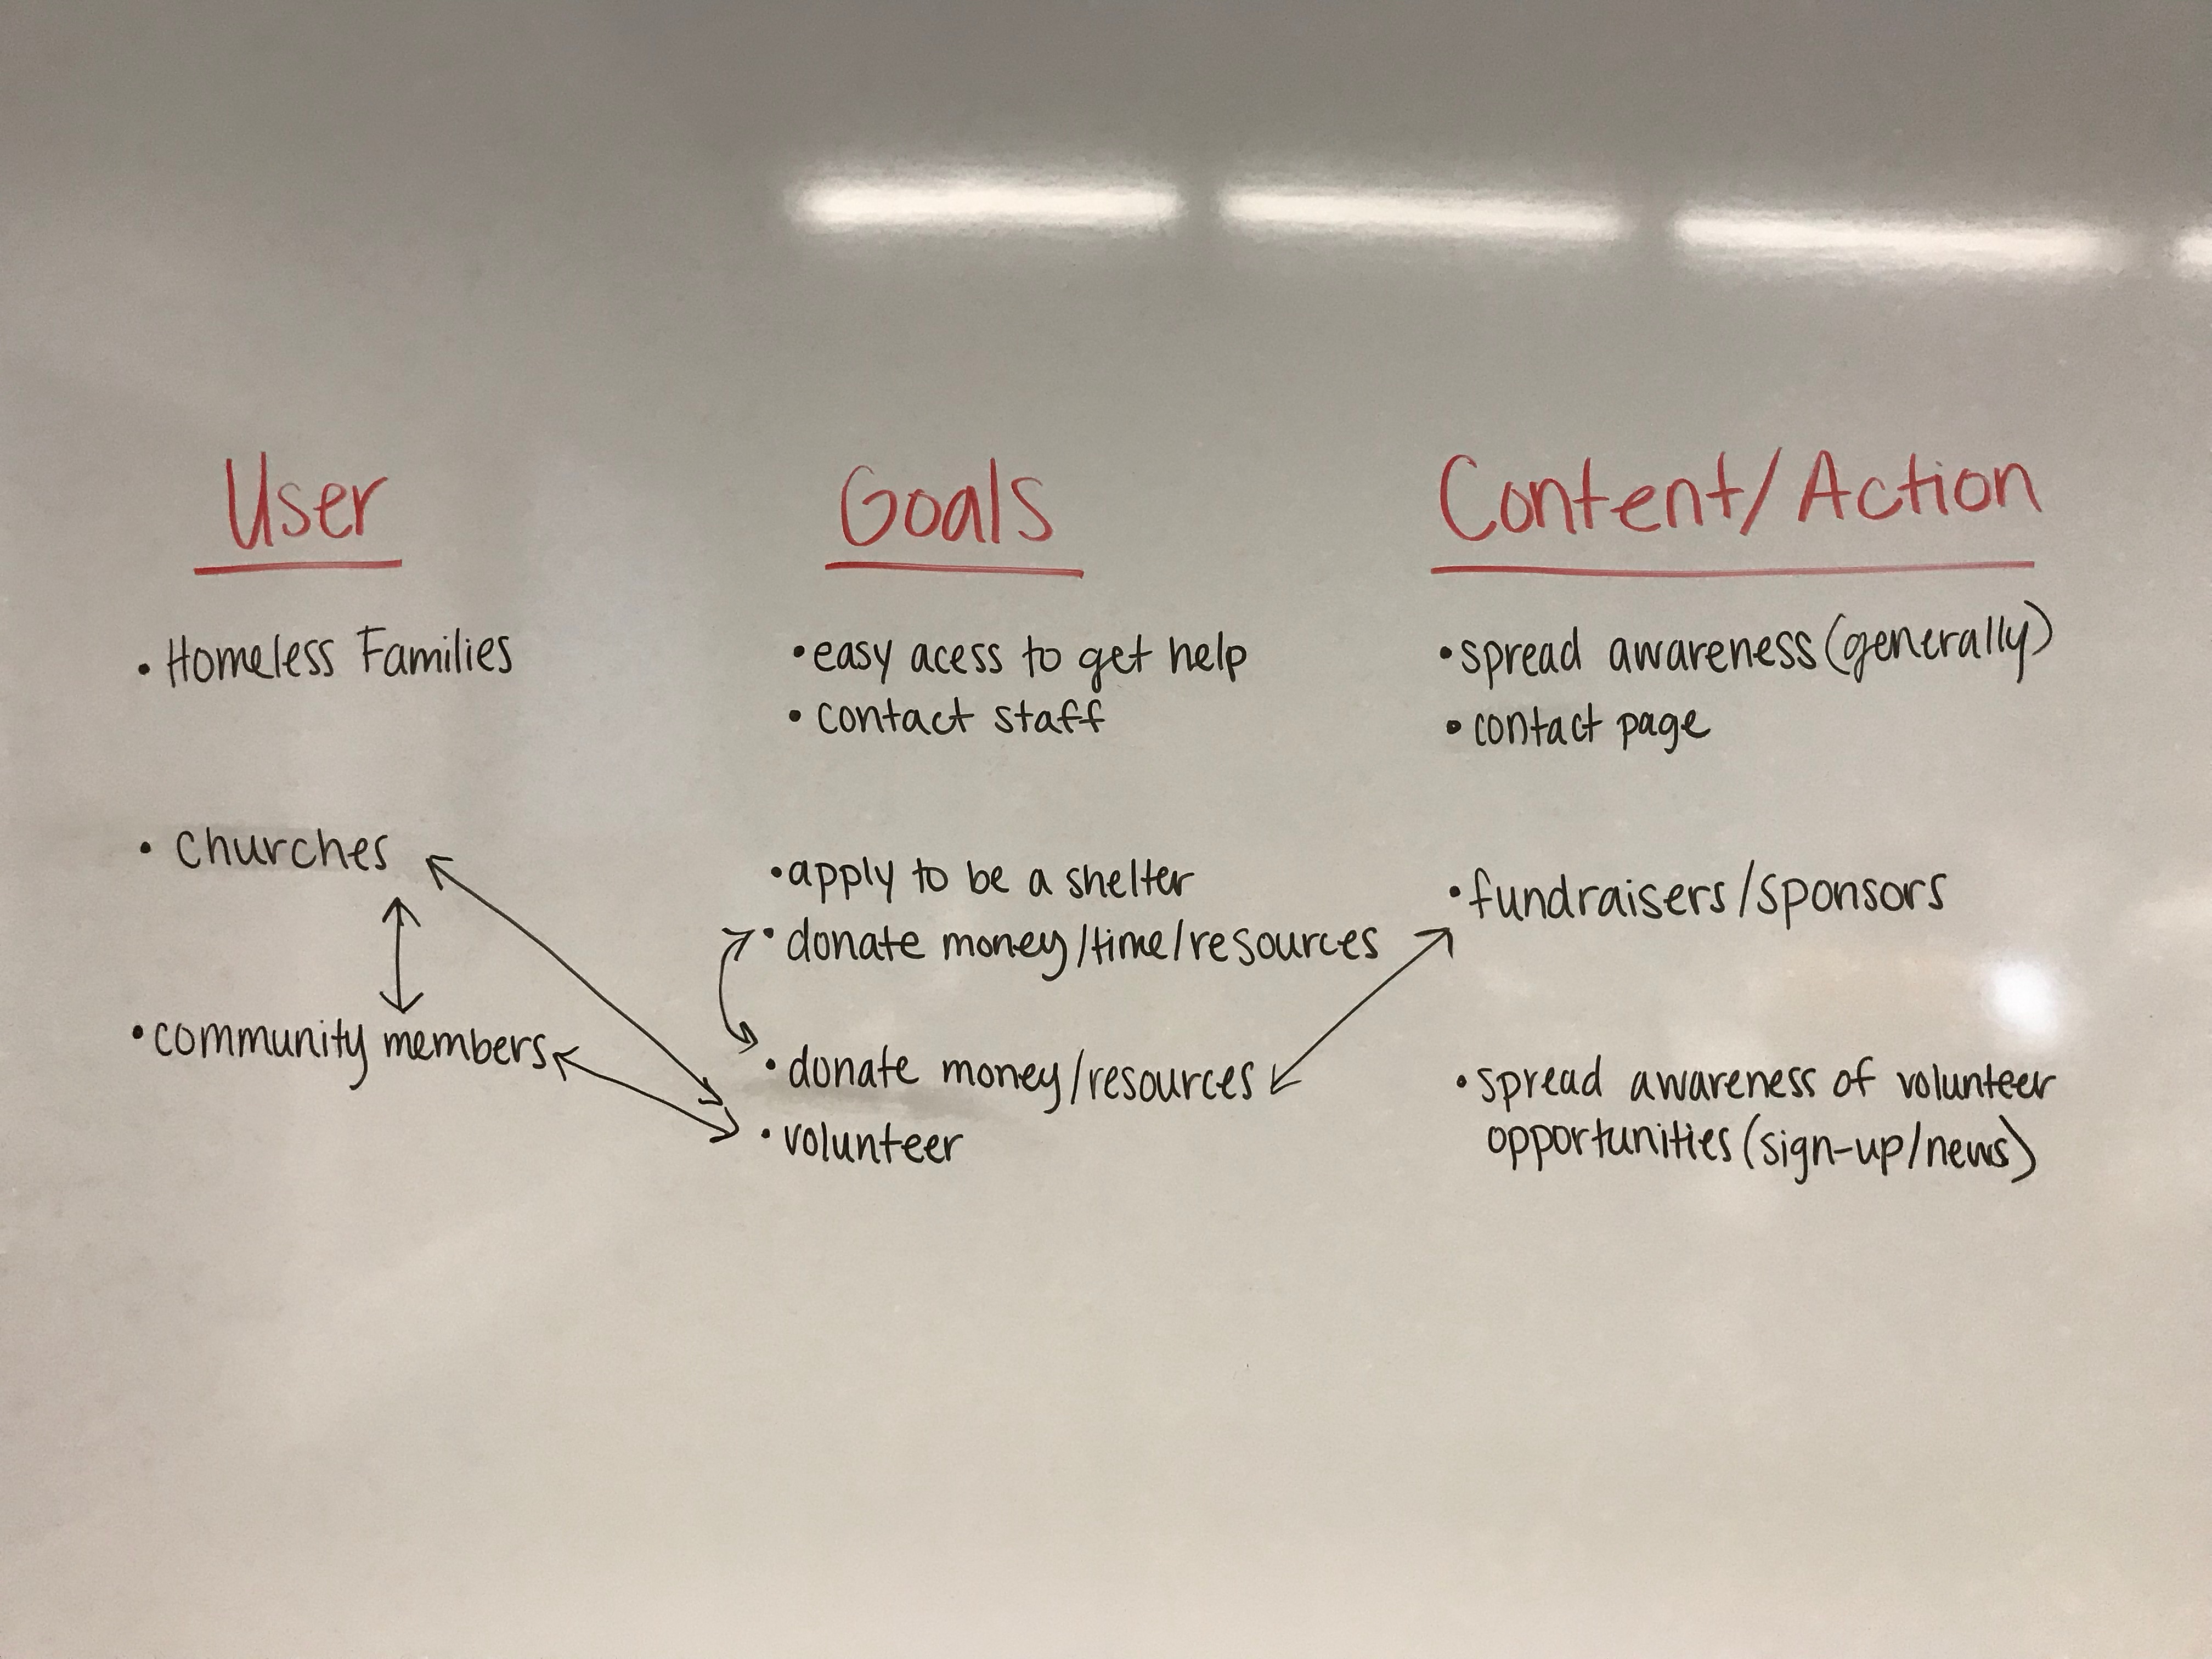 User
• Homeless Families
• churches
• community members
Goals
• easy acess to get help
• contact staff
• apply to be a shelter
• donate money/time/resources
• donate money/resources
• volunteer
Content/Action
• spread awareness (generally)
• contact page
• fundraisers/sponsors
• spread awareness of volunteer
opportunities (sign-up/news)